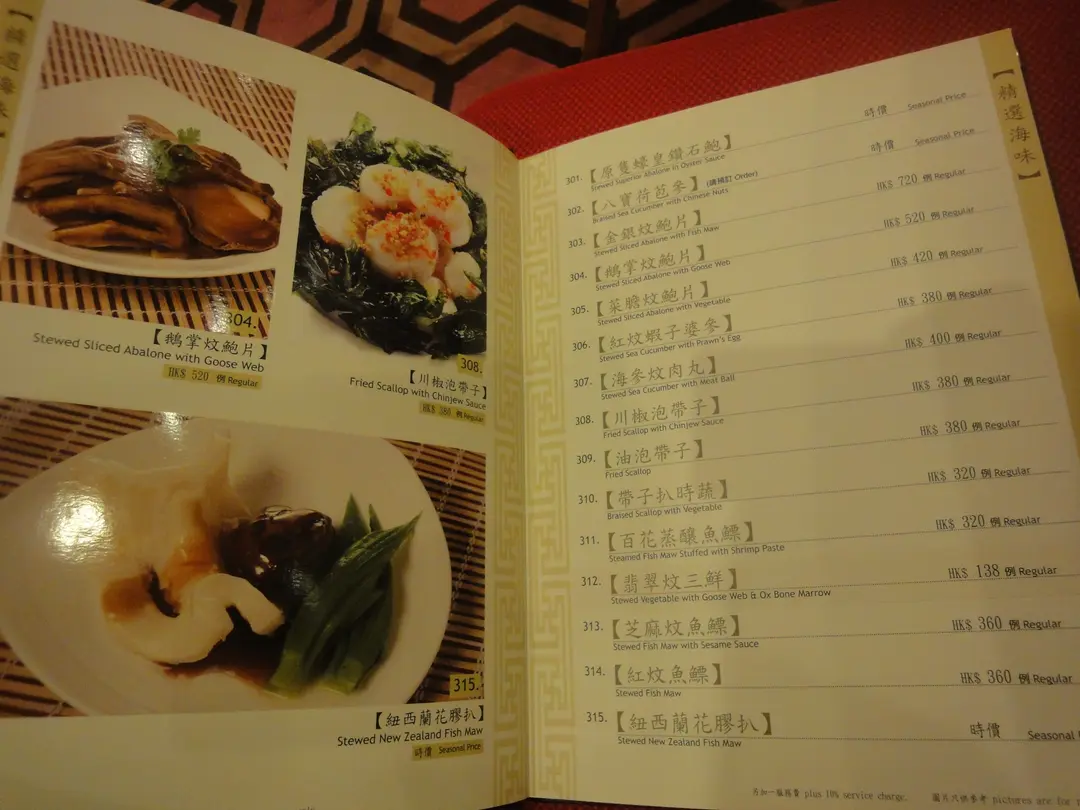 【精選海味】
304.
【鵝掌炆鮑片】
Stewed Sliced Abalone with Goose Web
HK$ 520 例 Regular
308.
【川椒泡帶子】
Fried Scallop with Chinjew Sauce
HK$ 380 例 Regular
315.
【紐西蘭花膠扒】
Stewed New Zealand Fish Maw
時價 Seasonal Price
【精選海味】
301. 【原隻蠔皇鑽石鮑】 時價 Seasonal Price
Stewed Superior Abalone in Oyster Sauce
302. 【八寶荷苞參】 (請預訂 Order) 時價 Seasonal Price
Braised Sea Cucumber with Chinese Nuts
303. 【金銀炆鮑片】 HK$ 720 例 Regular
Stewed Sliced Abalone with Fish Maw
304. 【鵝掌炆鮑片】 HK$ 520 例 Regular
Stewed Sliced Abalone with Goose Web
305. 【菜膽炆鮑片】 HK$ 420 例 Regular
Stewed Sliced Abalone with Vegetable
306. 【紅炆蝦子婆參】 HK$ 380 例 Regular
Stewed Sea Cucumber with Prawn's Egg
307. 【海參炆肉丸】 HK$ 400 例 Regular
Stewed Sea Cucumber with Meat Ball
308. 【川椒泡帶子】 HK$ 380 例 Regular
Fried Scallop with Chinjew Sauce
309. 【油泡帶子】 HK$ 380 例 Regular
Fried Scallop
310. 【帶子扒時蔬】 HK$ 320 例 Regular
Braised Scallop with Vegetable
311. 【百花蒸釀魚鰾】 HK$ 320 例 Regular
Steamed Fish Maw Stuffed with Shrimp Paste
312. 【翡翠炆三鮮】 HK$ 138 例 Regular
Stewed Vegetable with Goose Web & Ox Bone Marrow
313. 【芝麻炆魚鰾】 HK$ 360 例 Regular
Stewed Fish Maw with Sesame Sauce
314. 【紅炆魚鰾】 HK$ 360 例 Regular
Stewed Fish Maw
315. 【紐西蘭花膠扒】 時價 Seasonal
Stewed New Zealand Fish Maw
另加一服務費 plus 10% service charge. 圖片只供參考 pictures are for